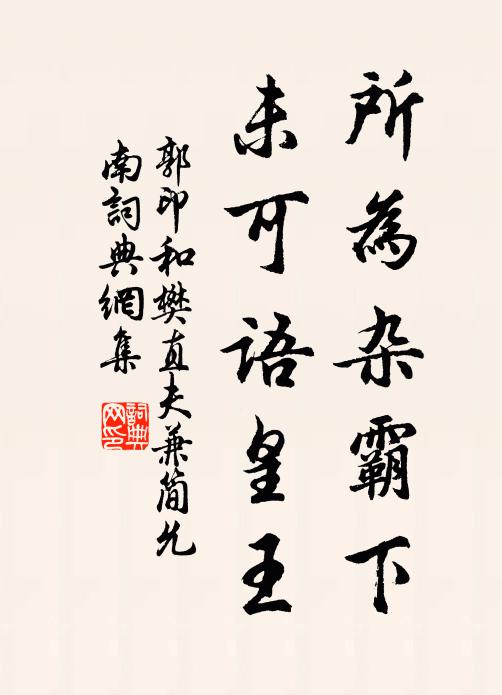 所為杂霸下
未可語皇王
郭印和樊直夫兼簡允
南詞典網集
詞典网印